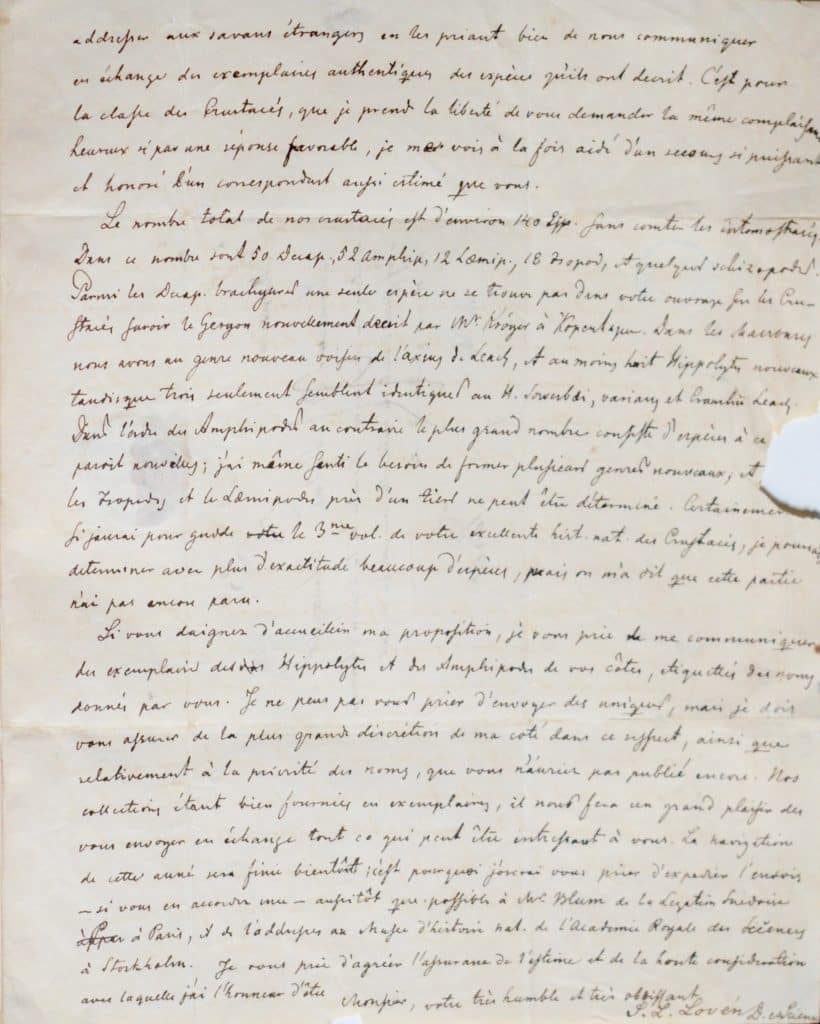 addresser aux savans étrangers en les priant bien de nous communiquer
en échange des exemplaires authentiques des espèces qu'ils ont decrit. C'est pour
la classe des Crustacés, que je prend la liberté de vous demander la même complaisan
heureux si par une réponse favorable, je me vois à la fois aidé d'un secours si puissant
et honoré d'un correspondant aussi estimé que vous.
Le nombre total de nos crustacés est d'environ 140 Esp. sans compter les entomostracés.
Dans ce nombre sont 50 Decap., 52 Amphip, 12 Læmip., 18 Isopod, et quelques schizopodes.
Parmi les Decap. brachyures une seule espèce ne se trouve pas dans votre ouvrage sur les Cru-
stacés savoir le Geryon nouvellement decrit par Mr Kröyer à Kopenhague. Dans les Macroures
nous avons un genre nouveau voisin de l'axius de Leach, et au moins huit Hippolytes nouveaux
tandisque trois seulement semblent identiques au H. Sowerbæi, varians et Cranchii Leach.
Dans l'ordre des Amphipodes au contraire le plus grand nombre consiste d'espèces à ce
paroit nouvelles; j'ai même senti le besoin de former plusieurs genres nouveaux, et
les Isopodes et le Læmipodes près d'un tiers ne peut être déterminé. Certainemen
si j'aurai pour guide le 3me vol. de votre excellente hist. nat. des Crustacés, je pourrai
determiner avec plus d'exactitude beaucoup d'espèces, mais on m'a dit que cette partie
n'ai pas encore paru.
Si vous daignez d'accueillir ma proposition, je vous prie de me communiquer
des exemplaire des Hippolytes et des Amphipodes de vos côtes, etiquettés des noms
donnés par vous. Je ne peus pas vous prier d'envoyer des uniques, mais je dois
vous assurer de la plus grande discrétion de ma coté dans ce respect, ainsi que
relativement à la priorité des noms, que vous n'auriez pas publié encore. Nos
collections étant bien fournies en exemplaires, il nous fera un grand plaisir des
vous envoyer en échange tout ce qui peut être intressant à vous. La navigation
de cette anné sera finie bientôt; c'est pourquoi j'oserai vous prier d'expedier l'envois
– si vous en accordez une – aussitôt que possible à Mr. Blum de la Legation Suedoise
à Paris, et de l'addresser au Musée d'histoire nat. de l'Academie Royale des Sciences
à Stockholm. Je vous prie d'agréer l'assurance de l'estime et de la haute consideration
avec laquelle j'ai l'honneur d'être Monsieur, votre très humble et très obeissant
S. L. Lovén